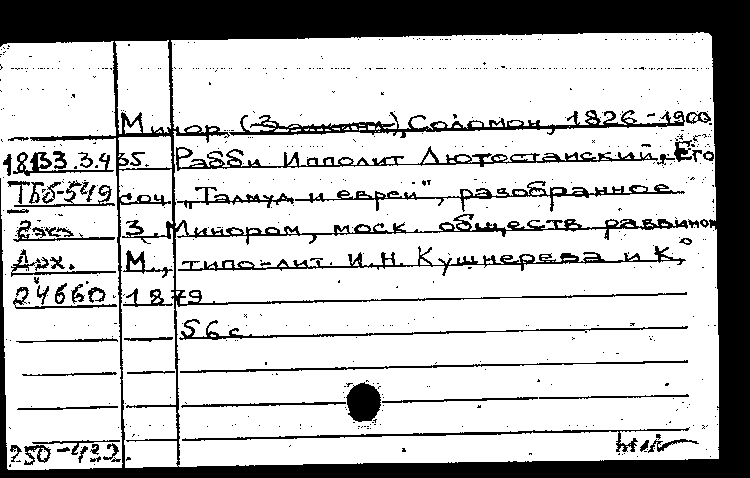 Минор, Соломон, 1826-1900
18.133.3.435. Рабби Ипполит Лютостанский, Его
ТБб-549 соч. „Талмуд и евреи", разобранное
З. Минором, моск. обществ раввином
Арх. М., типо-лит. И.Н. Кушнерева и К°,
04660. 1879.
56 с.
250-432.